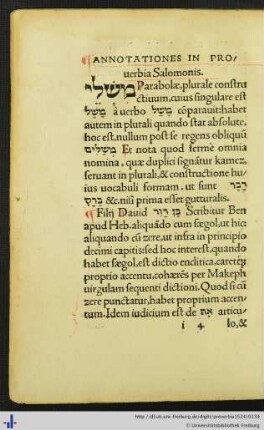 ¶ ANNOTATIONES IN PRO/
uerbia Salomonis.
מִשְׁלֵי Parabolæ, plurale constru
ctiuum, cuius singulare est
מָשָׁל à uerbo מָשַׁל cõparauit: habet
autem in plurali quando stat absolute,
hoc est, nullum post se regens obliquũ
מְשָׁלִים Et nota quod fermè omnia
nomina, quæ duplici signãtur kamez,
seruant in plurali, & constructione hu
ius uocabuli formam. ut sunt דָּבָר
&c. nisi prima esset gutturalis.
¶ Filij Dauid בֶן דָּוִד Scribitur Ben
apud Heb. aliquãdo cum sægol, ut hic:
aliquando cũ zere, ut infra in principio
decimi capitis: sed hoc interest. quando
habet sægol, est dictio enclitica, caretq;
proprio accentu, cohærés per Makeph
uirgulam sequenti dictioni. Quod si cũ
zere punctatur, habet proprium accen
tum. Idem iudicium est de אֶת articu/
i 4 lo, &
http://dl.ub.uni-freiburg.de/diglit/proverbia1524/0159
© Universitätsbibliothek Freiburg